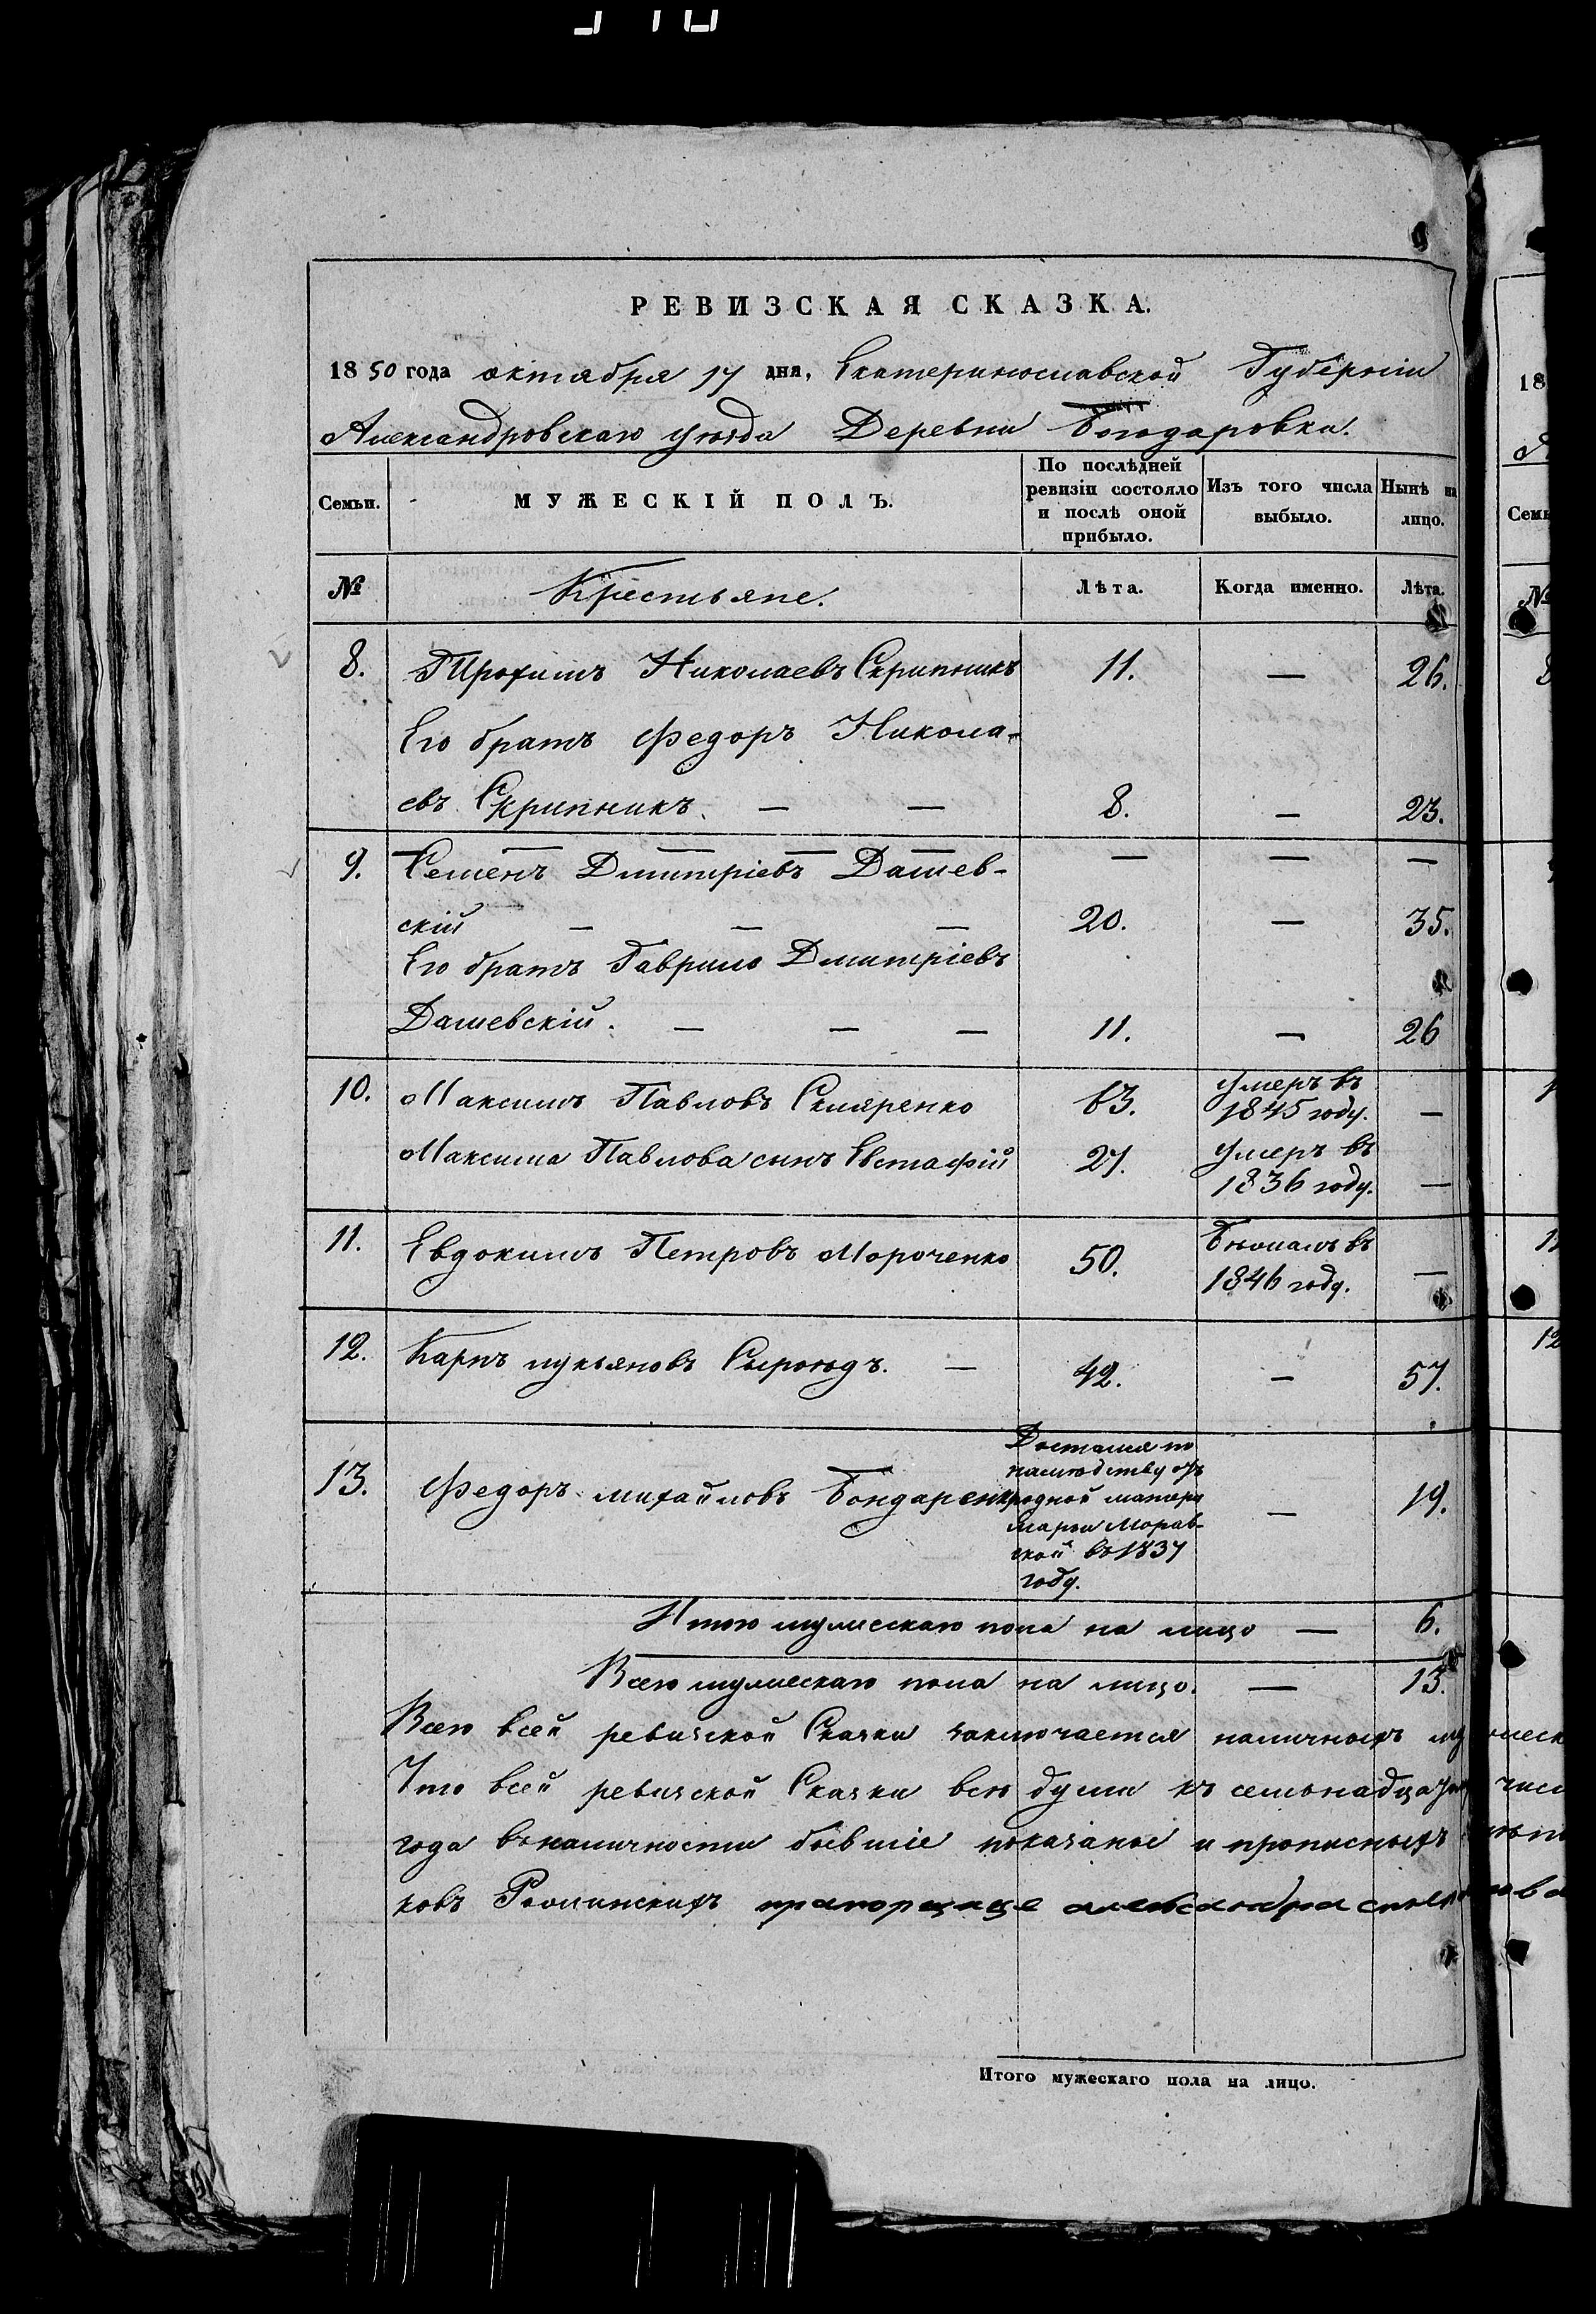 РЕВИЗСКАЯ СКАЗКА.
1850 года октября 17 дня, Екатеринославской Губерніи
Александровскаго уѣзда Деревни Богодаровки.
Семьи. МУЖЕСКІЙ ПОЛЪ. По послѣдней ревизіи состояло и послѣ оной прибыло. Изъ того числа выбыло. Нынѣ на лицо.
№ Крестьяне. Лѣта. Когда именно. Лѣта.
8. Трофимъ Николаевъ Скрипникъ 11. — 26.
Его братъ Федоръ Никола-
евъ Скрипникъ. — — 8. — 23.
9. Семенъ Дмитріевъ Дашев- — — —
скій — — — 20. — 35.
Его братъ Гаврило Дмитріевъ
Дашевскій. — — — 11. — 26
10. Максимъ Павловъ Скляренко 63. умеръ въ 1845 году. —
Максима Павлова сынъ Евстафій 27. умеръ въ 1836 году. —
11. Евдокимъ Петровъ Мороченко 50. Бѣжалъ въ 1846 году. —
12. Карпъ лукьяновъ Сыроѣдъ. — 42. — 57.
13. Федоръ михайловъ Бондаренко Достался по наслѣдству отъ родной матери Марьи Морав-ской въ 1837 году. — 19.
Итого мужескаго пола на лицо — 6.
Всего мужескаго пола на лицо. — 13.
Всего всей ревизской Сказки заключается наличныхъ му
Что всей ревизской Сказки всѣ души къ семьнадцатому
года въ наличности бывшіе показаны и прописныхъ
ковъ прапорщица александра
Итого мужескаго пола на лицо.
18
Семь
№
11
12